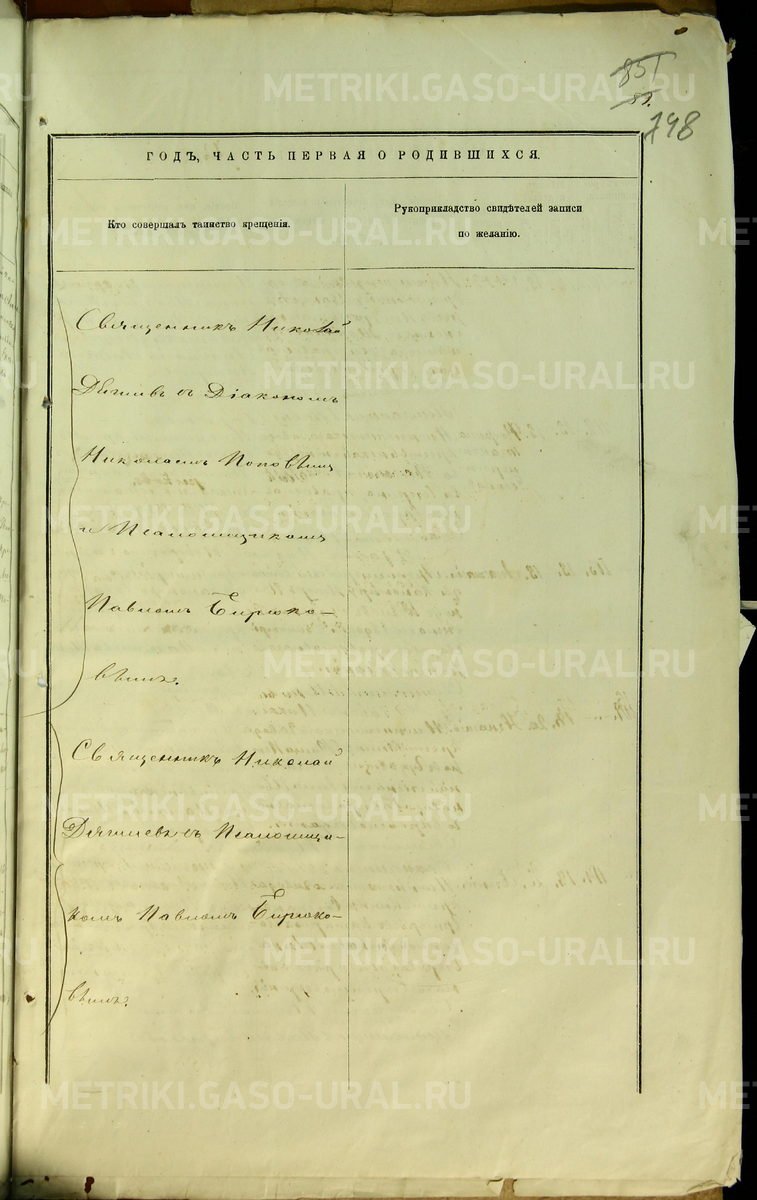 851
85.
798
ГОДЪ, ЧАСТЬ ПЕРВАЯ О РОДИВШИХСЯ.
Кто совершалъ таинство крещенія.
Рукоприкладство свидѣтелей записи
по желанію.
Священникъ Николай
съ Діакономъ
Николаемъ Поповымъ
и Псаломщикомъ
Павломъ Бирюко-
вымъ.
Священникъ Николай
Дягилевъ съ Псаломщи-
комъ Павломъ Бирюко-
вымъ.
METRIKI.GASO-URAL.RU